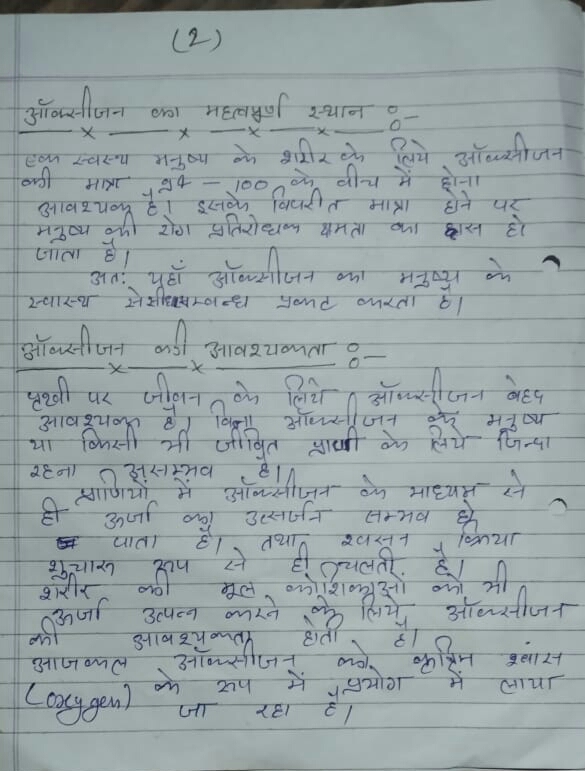 (2)
ऑक्सीजन का महत्वपूर्ण स्थान :-
एक स्वस्थ मनुष्य के शरीर के लिये ऑक्सीजन
की मात्रा 94 - 100 के बीच में होना
आवश्यक है। इसके विपरीत मात्रा होने पर
मनुष्य की रोग प्रतिरोधक क्षमता का ह्रास हो
जाता है।
अतः यहाँ ऑक्सीजन का मनुष्य के
स्वास्थ से सीधा सम्बन्ध प्रकट करता है।
ऑक्सीजन की आवश्यकता :-
पृथ्वी पर जीवन के लिये ऑक्सीजन बेहद
आवश्यक है। बिना ऑक्सीजन के मनुष्य
या किसी भी जीवित प्राणी के लिये जिन्दा
रहना असम्भव है।
प्राणियों में ऑक्सीजन के माध्यम से
ही ऊर्जा का उत्सर्जन सम्भव हो
पाता है। तथा श्वसन क्रिया
शुचारू रूप से ही चलती है।
शरीर की मूल कोशिकाओं को भी
ऊर्जा उत्पन्न करने के लिये ऑक्सीजन
की आवश्यकता होती है।
आजकल ऑक्सीजन को कृत्रिम श्वांस
(oxygen) के रूप में प्रयोग में लाया
जा रहा है।